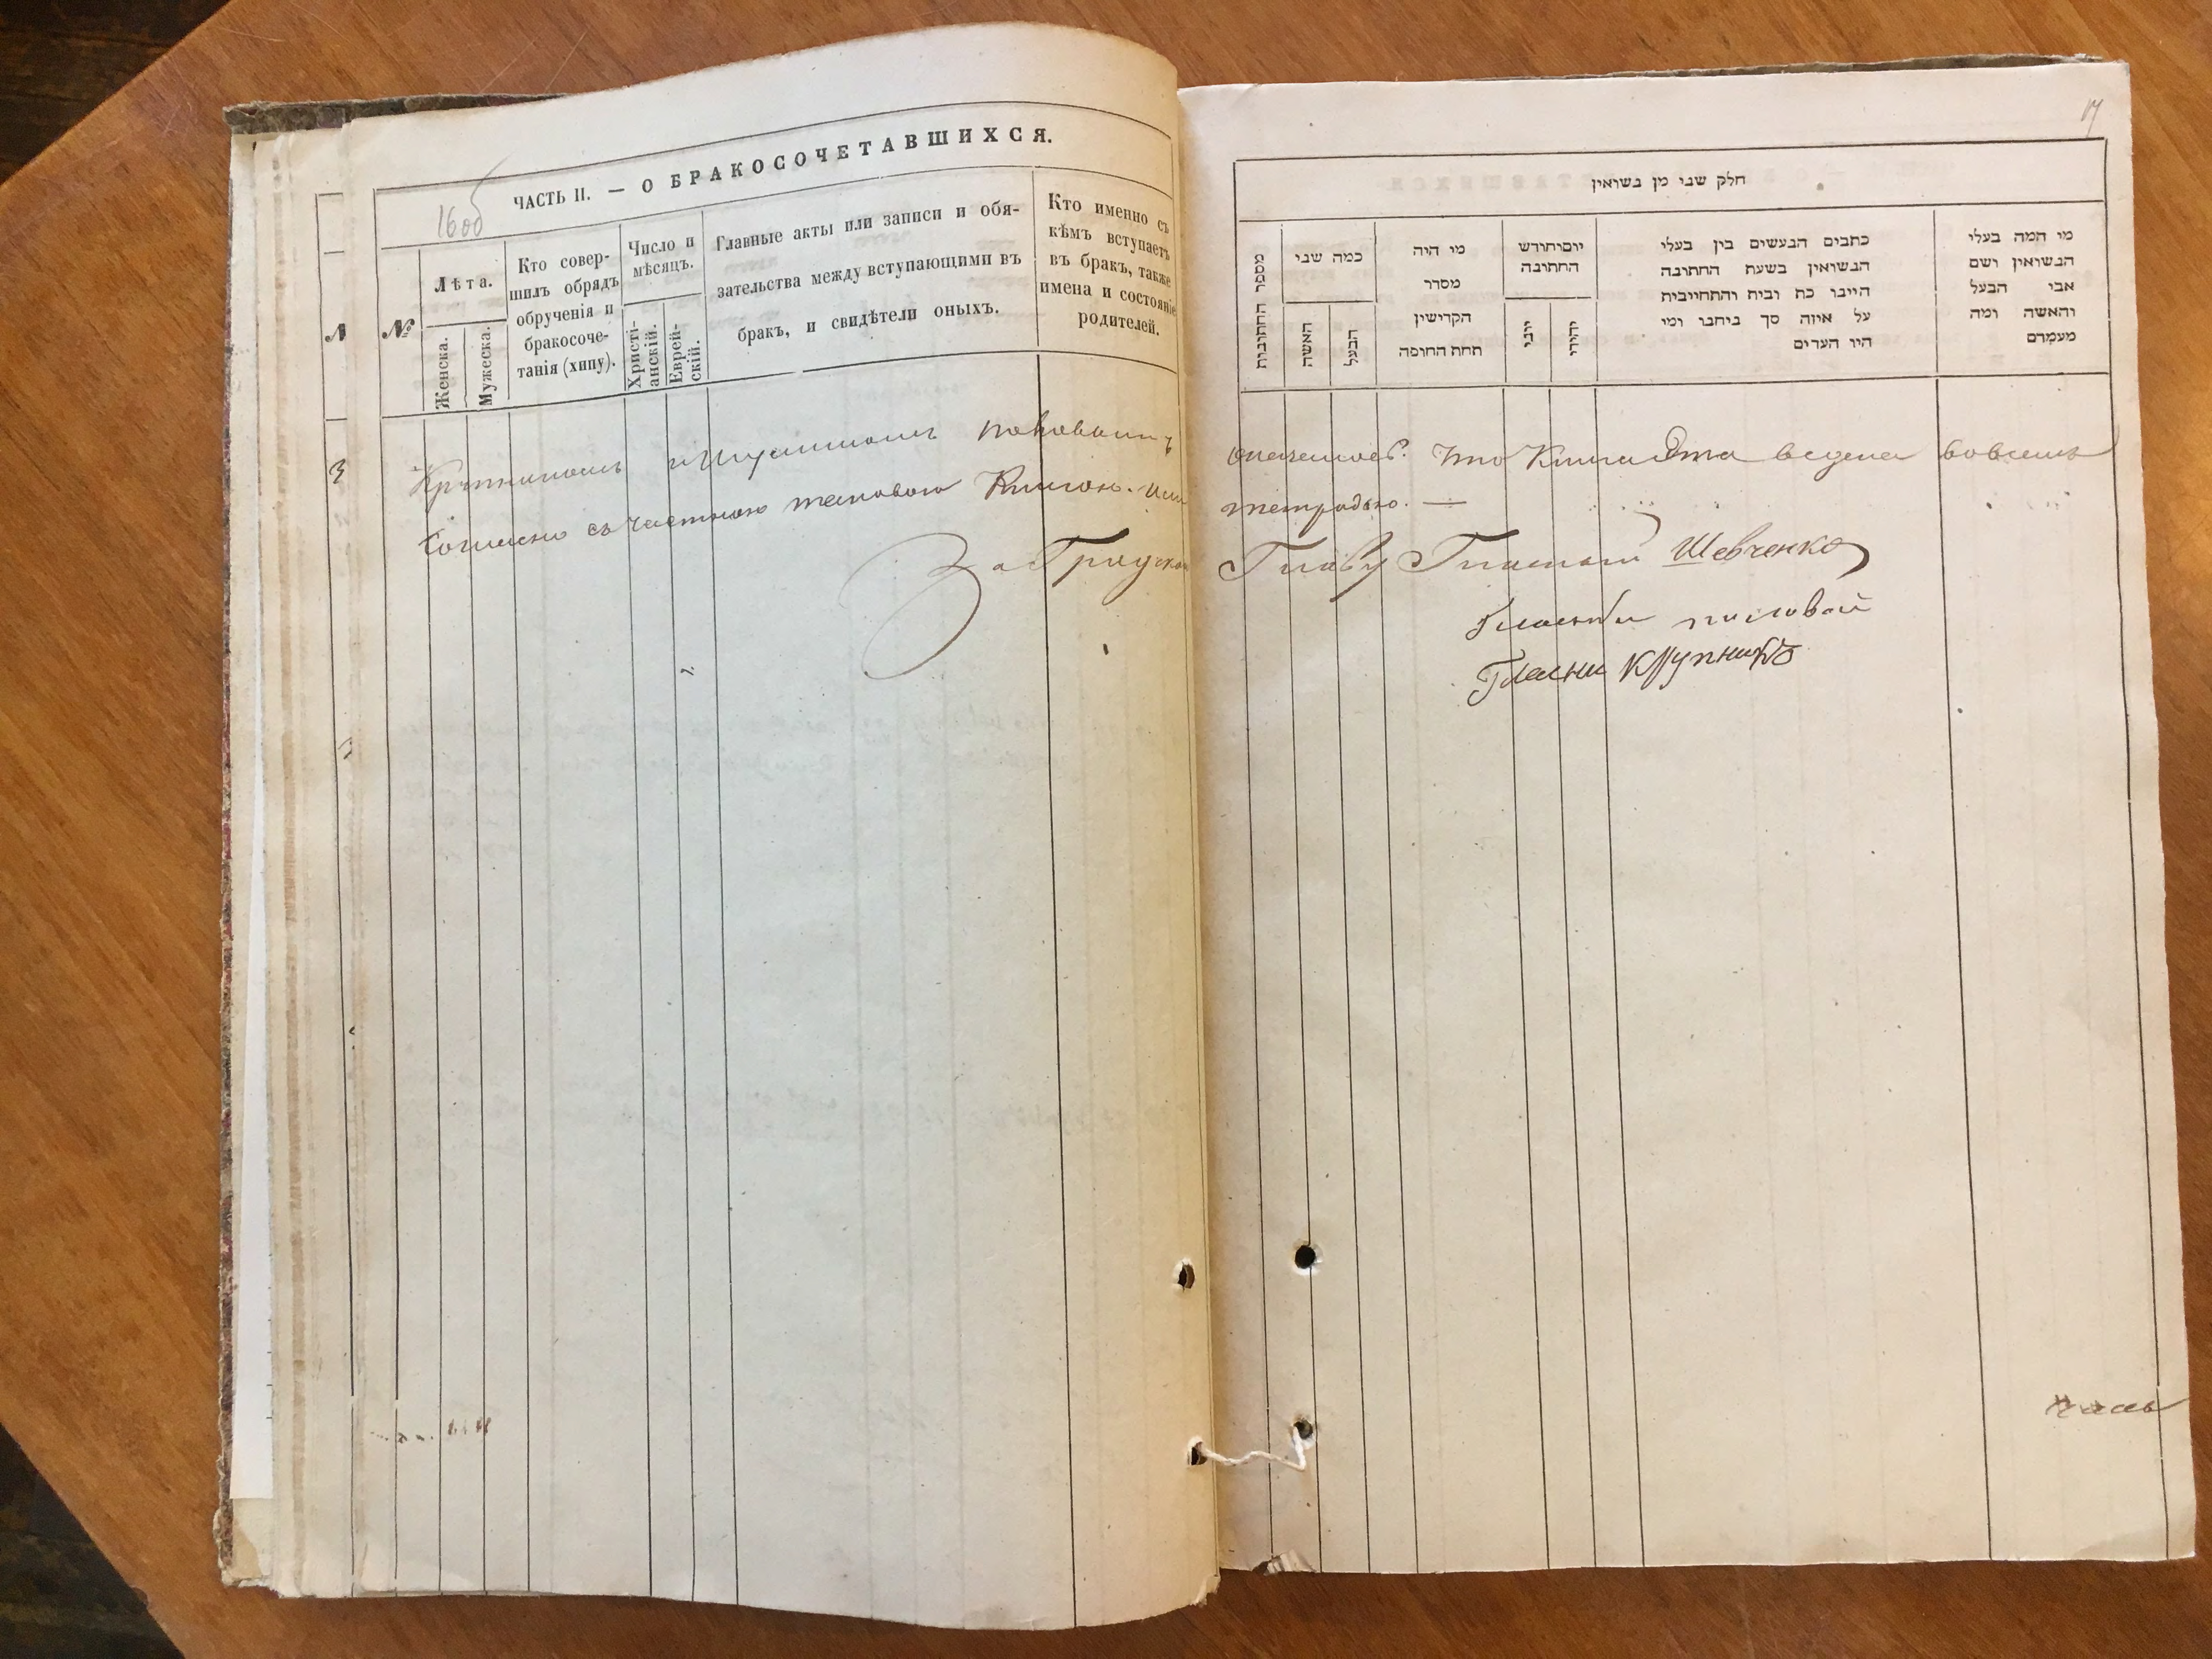 16об
ЧАСТЬ II. — О БРАКОСОЧЕТАВШИХСЯ.
№
Лѣта.
Женска.
Мужеска.
Кто совер-
шилъ обрядъ
обрученія и
бракосоче-
танія (хипу).
Число и
мѣсяцъ.
Христі-
анскій.
Еврей-
скій.
Главные акты или записи и обя-
зательства между вступающими въ
бракъ, и свидѣтели оныхъ.
Кто именно съ
кѣмъ вступаетъ
въ бракъ, также
имена и состояніе
родителей.
Согласно съ частною таковою Книгою.
За Градскаго
17
חלק שני מן נשואין
מספר החתונות
כמה שני
האשה
הבעל
מי היה
מסדר
הקדישין
תחת החופה
יום וחודש
החתונה
יוני
יהודי
כתבים הנעשים בין בעלי
הנשואין בשעת החתונה
היינו כת ובית והתחייבית
על איזה סך ביחנו ומי
היו העדים
מי המה בעלי
הנשואין ושם
אבי הבעל
והאשה ומה
מעמדם
что Книга Эта ведена вовсемъ
тетрадью. —
Главу Гласный Шевченко
Гласный
Гласни Крупникъ